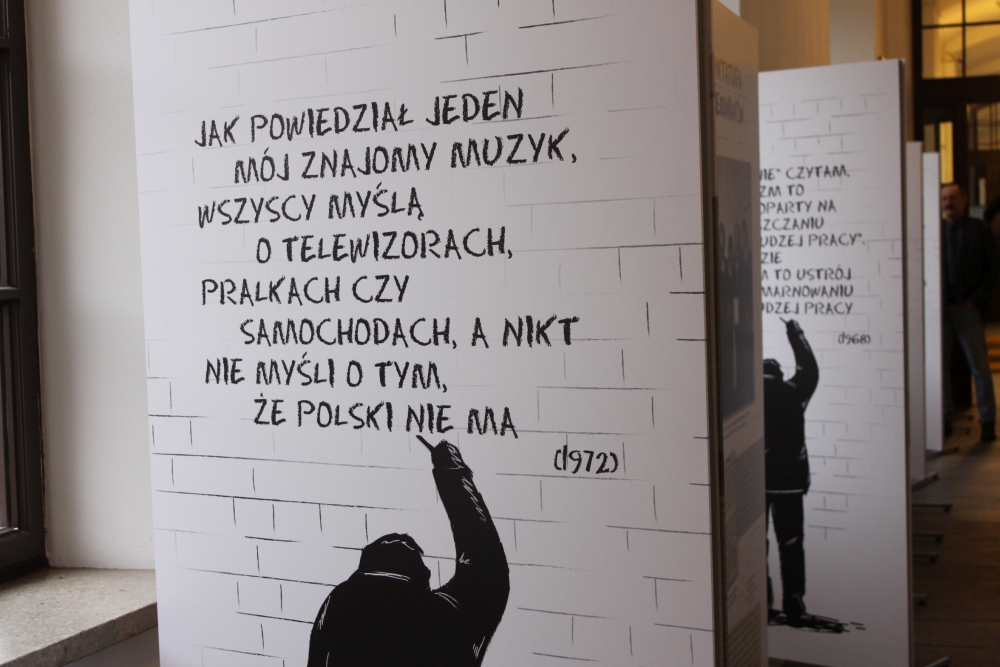 JAK POWIEDZIAŁ JEDEN
MÓJ ZNAJOMY MUZYK,
WSZYSCY MYŚLĄ
O TELEWIZORACH,
PRALKACH CZY
SAMOCHODACH, A NIKT
NIE MYŚLI O TYM,
ŻE POLSKI NIE MA
(1972)
NIE" CZYTAM,
ZM TO
OPARTY NA
SZCZANIU
UDZEJ PRACY".
ZIE
M TO USTRÓJ
MARNOWANIU
UDZEJ PRACY
(1968)